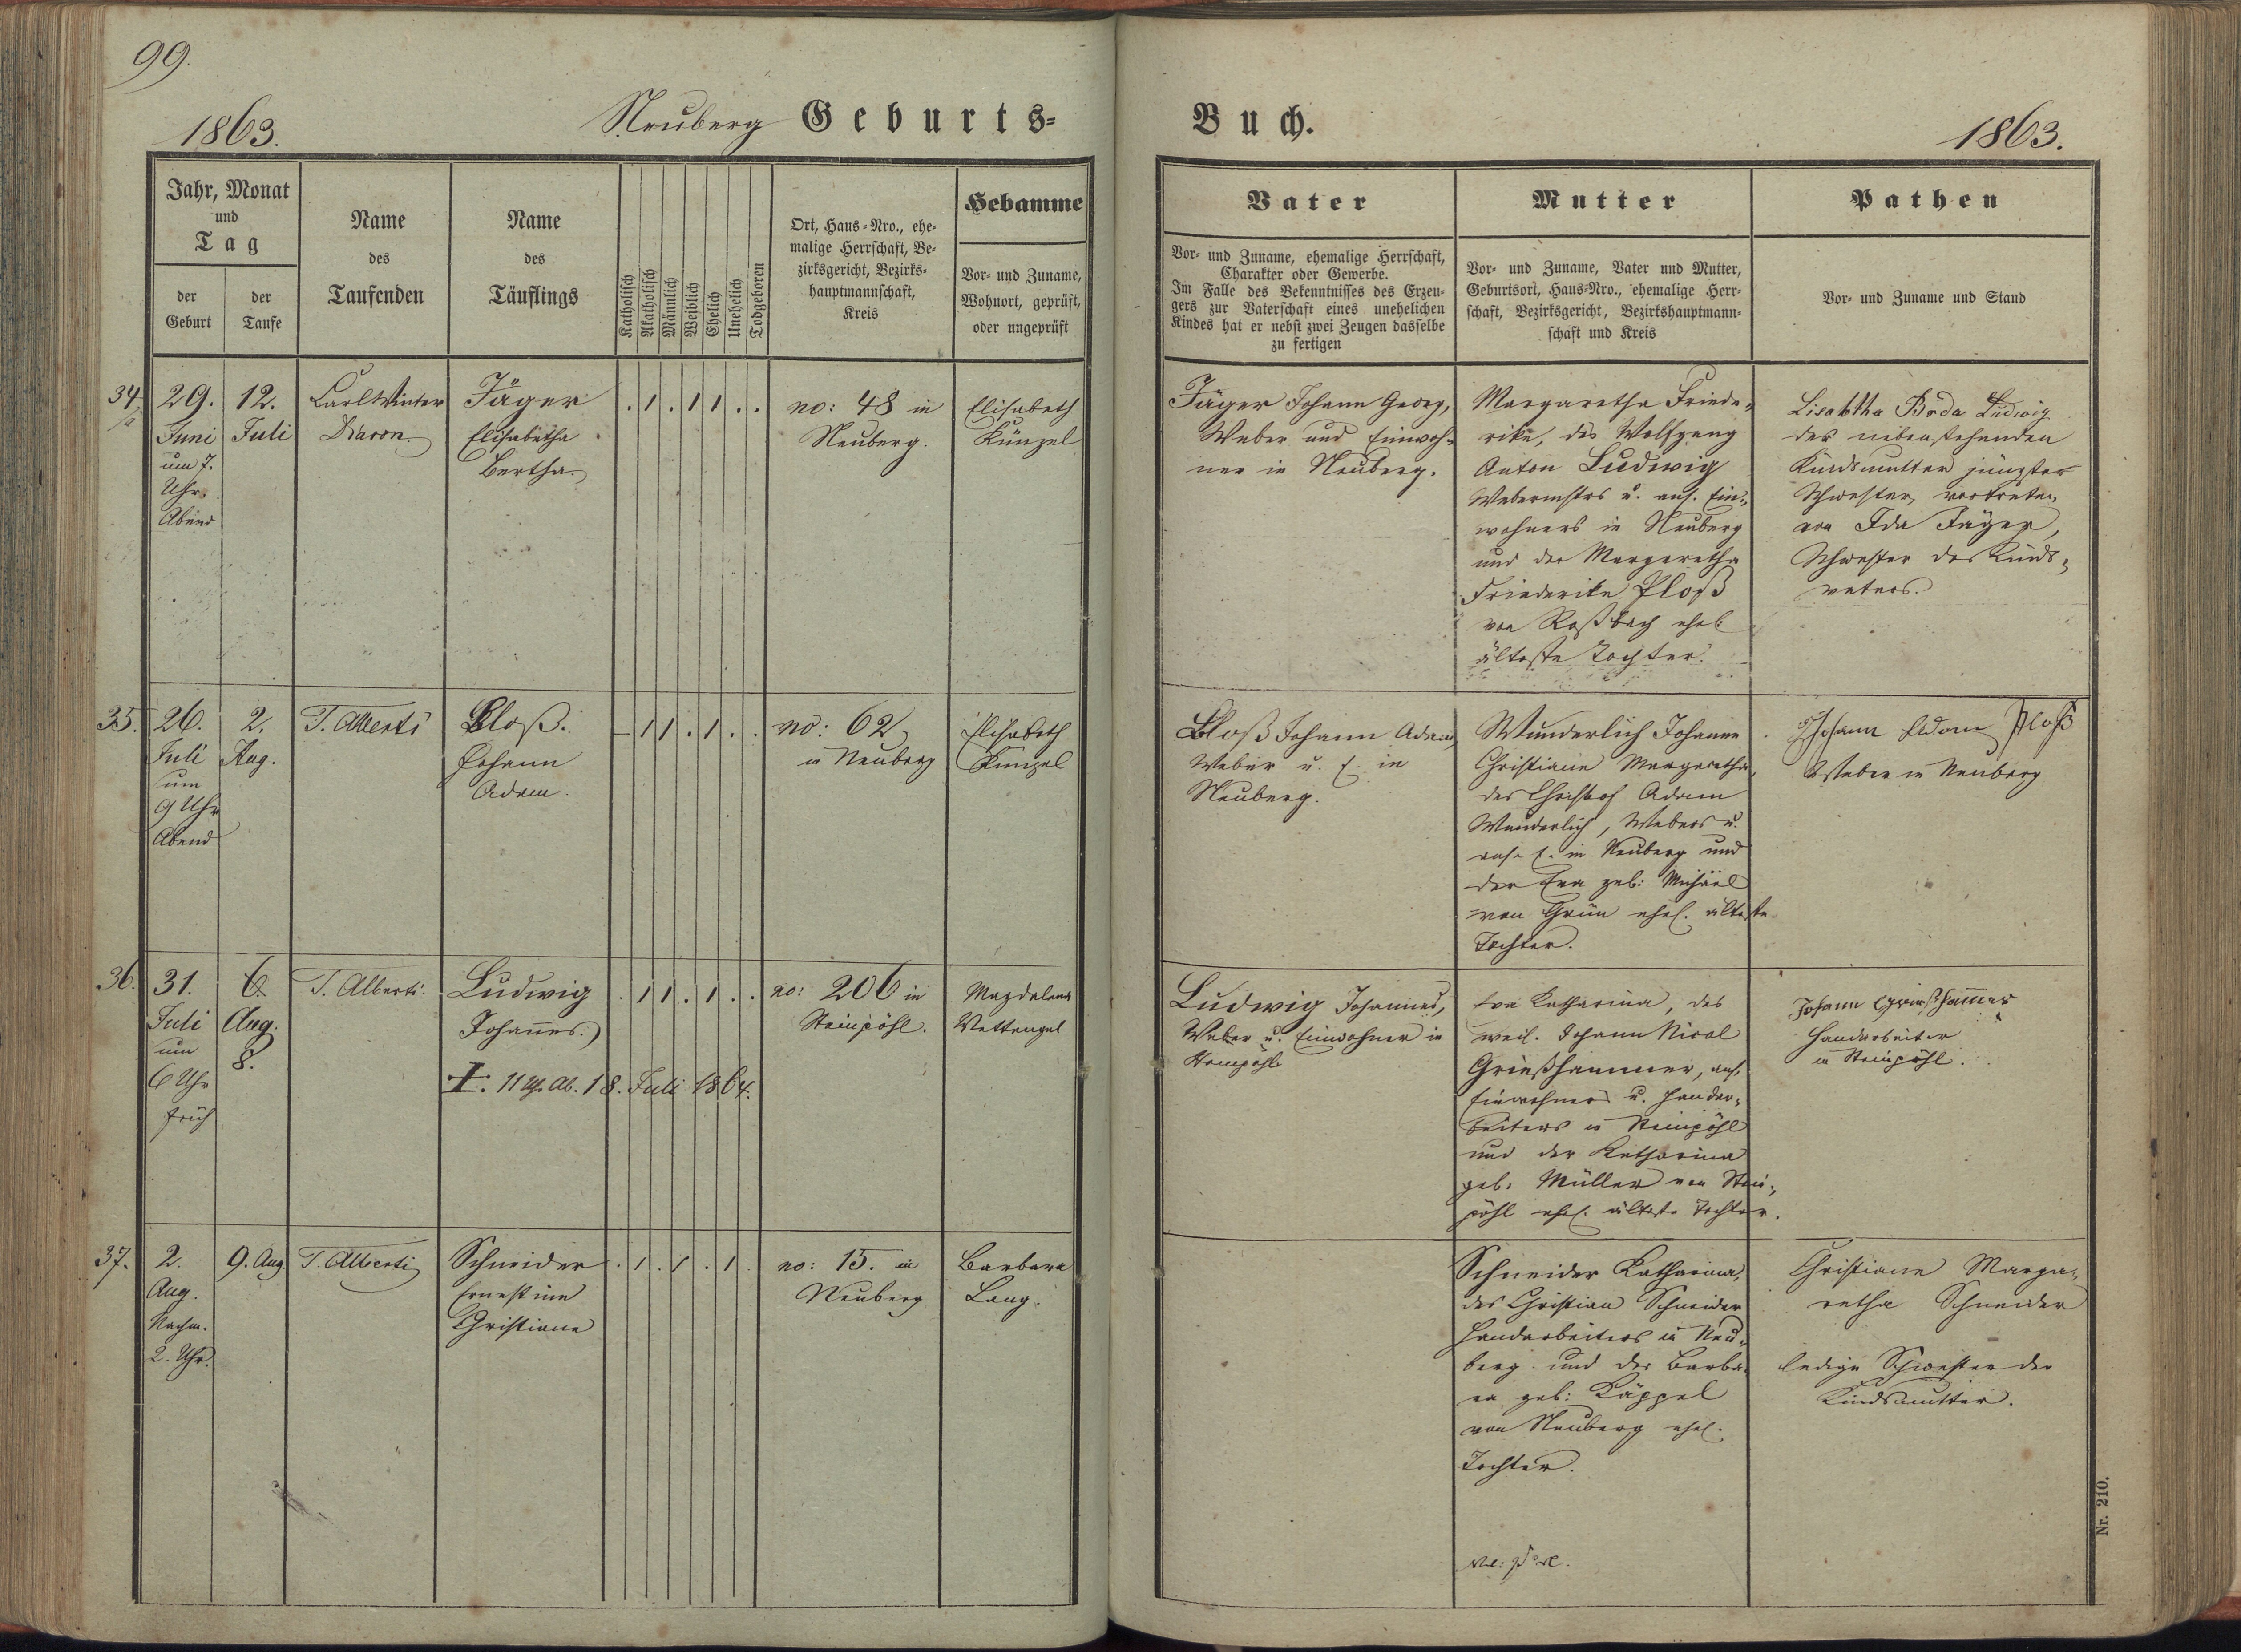 99.
1863.
Neuberg Geburts=
Buch.
1863.
Jahr, Monat
und
Tag
der
Geburt
der
Taufe
Name
des
Taufenden
Name
des
Täuflings
Katholisch
Akatholisch
Männlich
Weiblich
Ehelich
Unehelich
Todgeboren
Ort, Haus=Nro., ehe=
malige Herrschaft, Be=
zirksgericht, Bezirks=
hauptmannschaft,
Kreis
Hebamme
Vor= und Zuname,
Wohnort, geprüft,
oder ungeprüft
Vater
Vor= und Zuname, ehemalige Herrschaft,
Charakter oder Gewerbe.
Im Falle des Bekenntnisses des Erzeu=
gers zur Vaterschaft eines unehelichen
Kindes hat er nebst zwei Zeugen dasselbe
zu fertigen
Mutter
Vor= und Zuname, Vater und Mutter,
Geburtsort, Haus=Nro., ehemalige Herr=
schaft, Bezirksgericht, Bezirkshauptmann=
schaft und Kreis
Pathen
Vor= und Zuname und Stand
34.
29.
Juni
um 7.
Uhr
Abend
12.
Juli
Carl Winter
Diacon.
Jäger
Elisabetha
Bertha.
. 1 . 1 1 . .
no: 48 in
Neuberg.
Elisabeth
Künzel
Jäger Johann Georg,
Weber und Einwoh=
ner in Neuberg.
Margaretha Friede=
rike, des Wolfgang
Anton Ludwig
Webermstrs u. ans. Ein=
wohners in Neuberg
und der Margaretha
Friederike Ploß
von Roßbach ehel.
älteste Tochter.
Ludwig
der nebenstehenden
Kindsmutter jüngste
Schwester, vertreten
von Ida Jäger,
Schwester des Kinds=
vaters.
35.
26.
Juli
um
9 Uhr
Abend
2.
Aug.
T. Alberti
Ploß.
Johann
Adam.
. 1 1 . 1 . .
no: 62
in Neuberg
Elisabeth
Künzel
Ploß Johann Adam,
Weber u. E. in
Neuberg.
Wunderlich Johanne
Christiane Margaretha,
des Christof Adam
Wunderlich, Webers u.
ans. E. in Neuberg und
der Eva geb: Michael
von Grün ehel. älteste
Tochter.
Johann Adam Ploß
Weber in Neuberg
36.
31.
Juli
um
6 Uhr
früh
6.
Aug.
8.
T. Alberti.
Ludwig
Johannes.
. 1 1 . 1 . .
18. Juli 1864.
no: 206 in
Steinpöhl.
Magdalena
Wettengel
Ludwig Johannes,
Weber u. Einwohner in
Steinpöhl
Eva Katharina, des
weil. Johann Nicol
Grießhammer, ans.
Einwohners u. Handar=
beiters in Steinpöhl
und der Katharina
geb. Müller von Stein=
pöhl ehel. älteste Tochter.
Johann Grießhammer
Handarbeiter
in Steinpöhl.
37.
2.
Aug.
Nachm.
2. Uhr.
9. Aug.
T. Alberti
Schneider
Ernestine
Christiane
. 1 . 1 . 1 .
no: 15. in
Neuberg
Barbara
Lang.
Schneider Katharina,
des Christian Schneider
Handarbeiters in Neu=
berg und der Barba=
ra geb: Käppel
von Neuberg ehel.
Tochter.
Christiane Marga=
retha Schneider
ledige Schwester der
Kindsmutter.
Nr. 210.